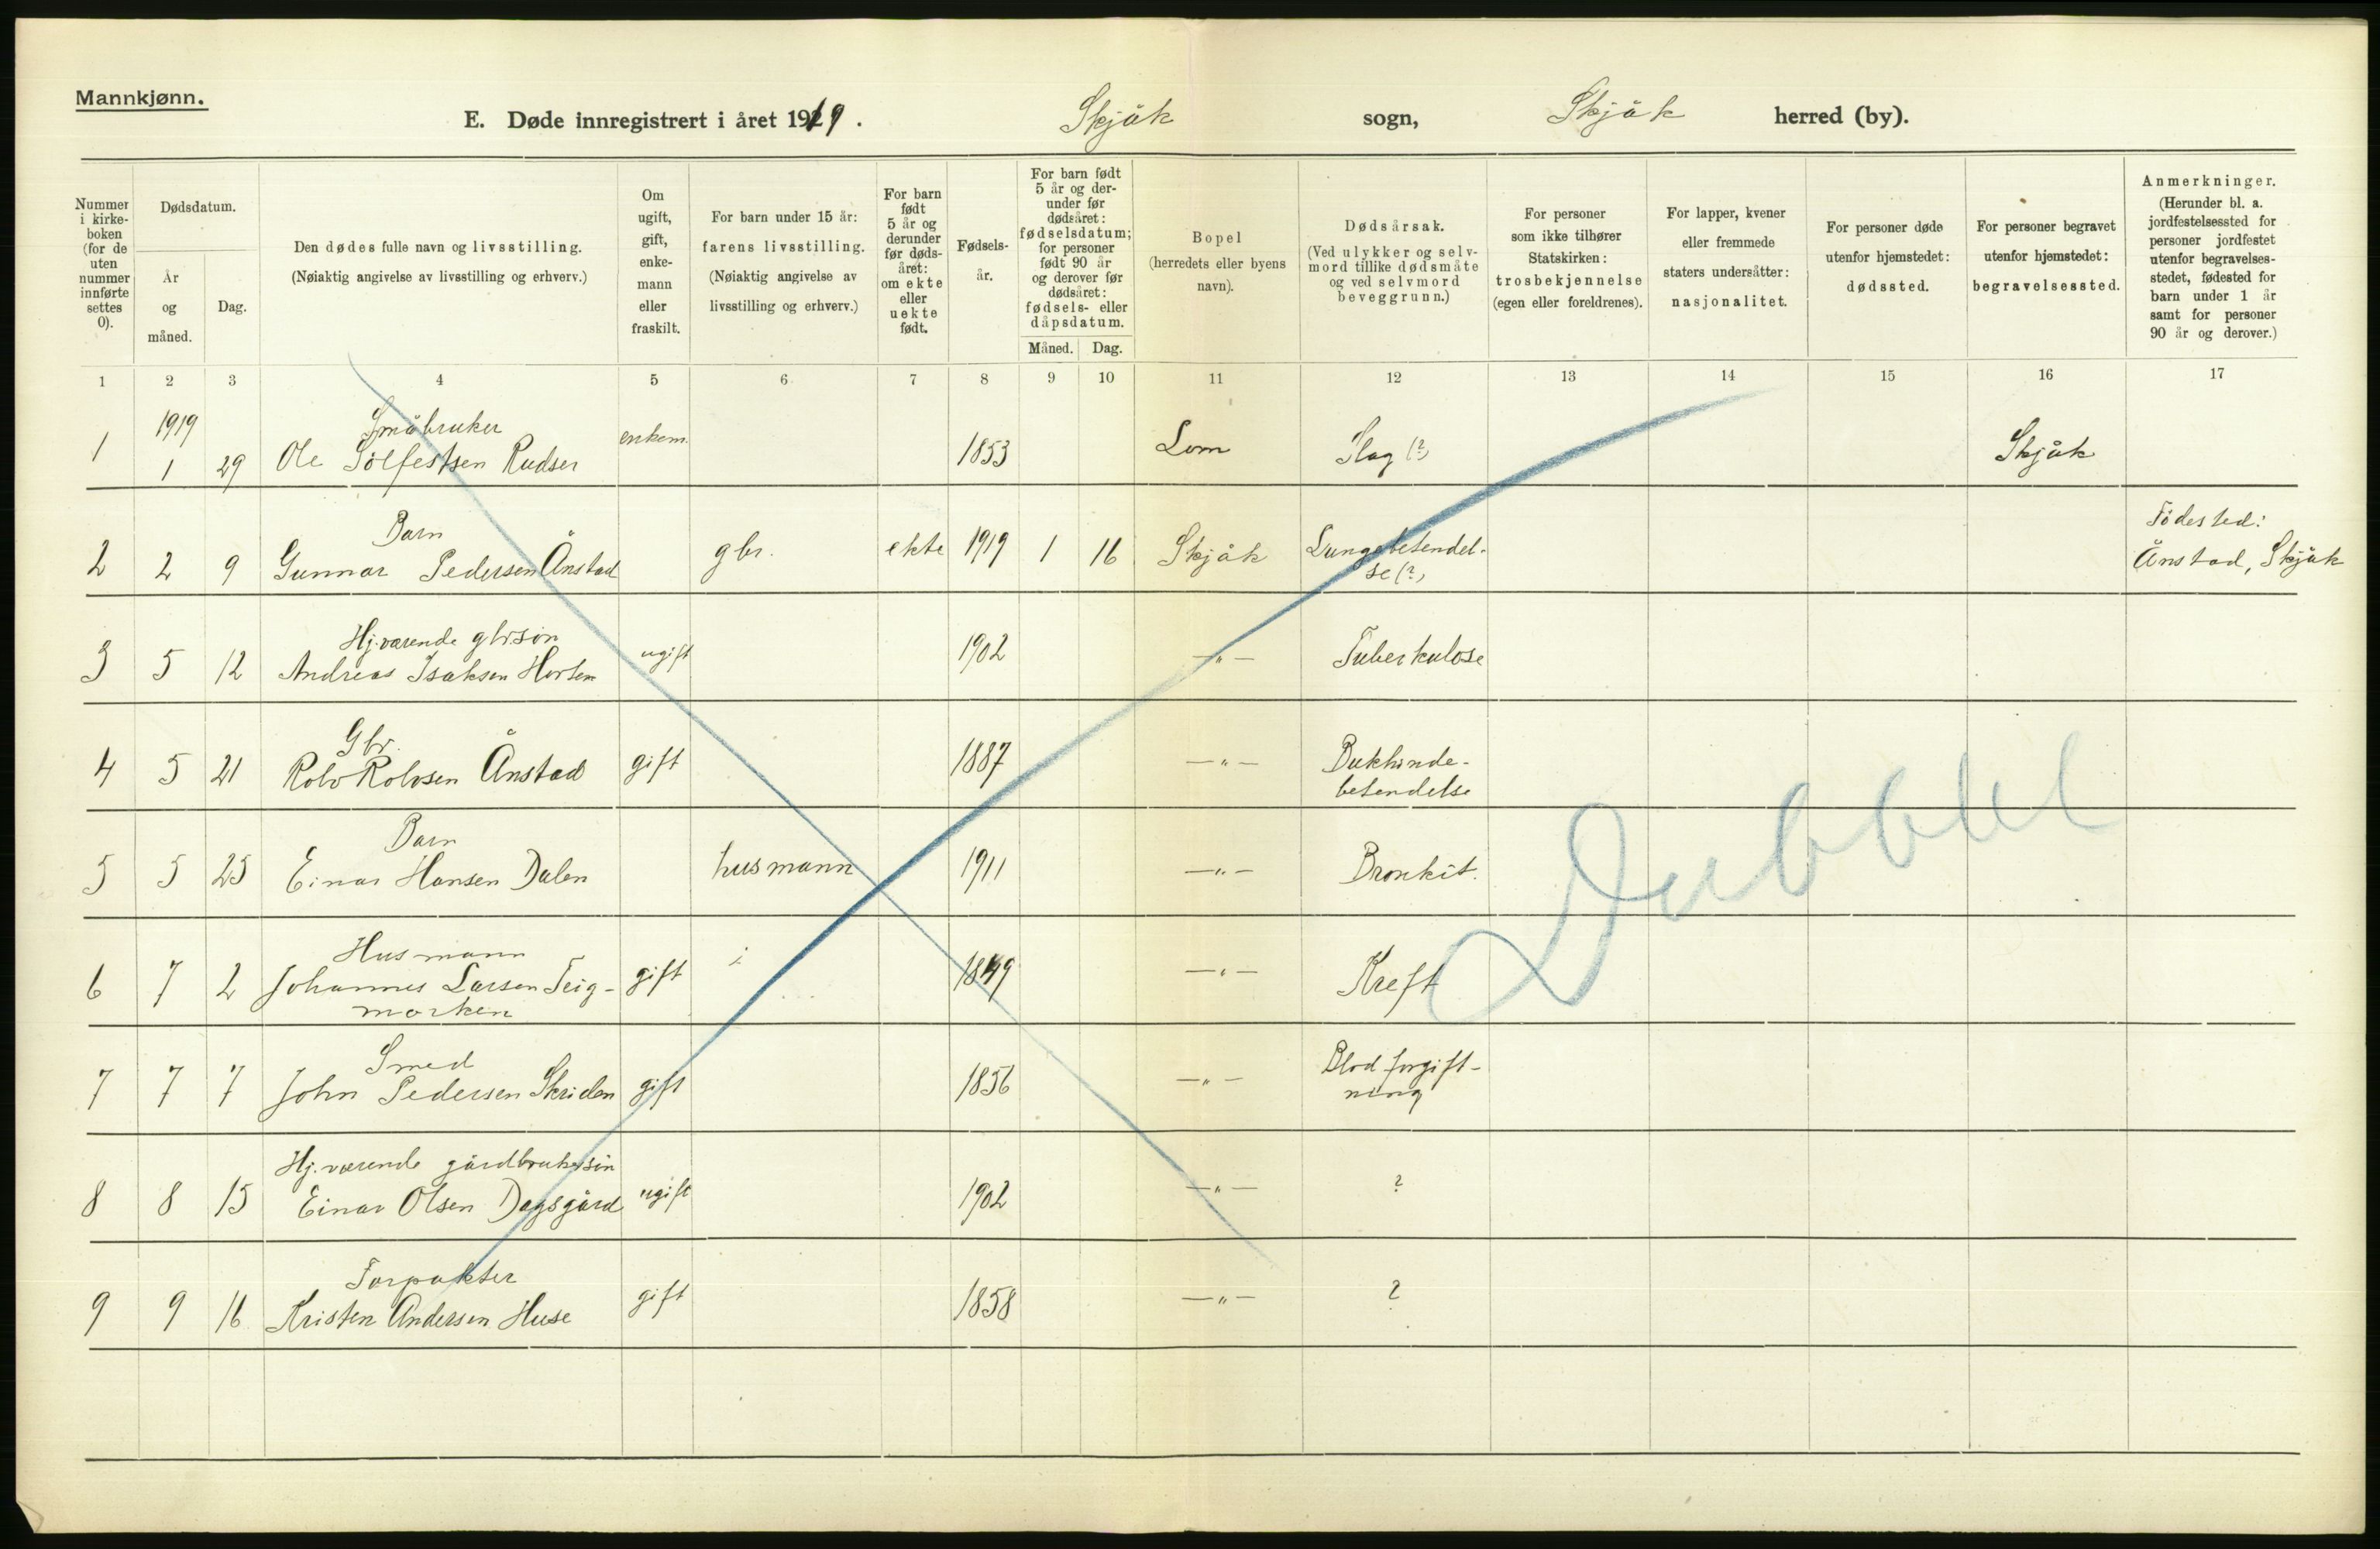 Mannkjønn.
E. Døde innregistrert i året 1919. Skjåk sogn, Skjåk herred (by).
Nummer i kirke-boken (for de uten nummer innførte settes 0).
Dødsdatum.
År og måned.
Dag.
Den dødes fulle navn og livsstilling.
(Nøiaktig angivelse av livsstilling og erhverv.)
Om ugift, gift, enke-mann eller fraskilt.
For barn under 15 år: farens livsstilling.
(Nøiaktig angivelse av livsstilling og erhverv.)
For barn født 5 år og derunder før døds-året: om ekte eller uekte født.
Fødsels-år.
For barn født 5 år og der-under før dødsåret: fødselsdatum; for personer født 90 år og derover før dødsåret: fødsels- eller dåpsdatum.
Måned. Dag.
Bopel
(herredets eller byens navn).
Dødsårsak.
(Ved ulykker og selv-mord tillike dødsmåte og ved selvmord beveggrunn.)
For personer som ikke tilhører Statskirken: trosbekjennelse (egen eller foreldrenes).
For lapper, kvener eller fremmede staters undersåtter: nasjonalitet.
For personer døde utenfor hjemstedet: dødssted.
For personer begravet utenfor hjemstedet: begravelsessted.
Anmerkninger.
(Herunder bl. a. jordfestelsessted for personer jordfestet utenfor begravelses-stedet, fødested for barn under 1 år samt for personer 90 år og derover.)
1 2 3 4 5 6 7 8 9 10 11 12 13 14 15 16 17
1919 Småbruker
1 1 29 Ole Solfestsen Rudser enkem. 1853 Lom Slag (?) Skjåk
Barn Fødested:
2 2 9 Gunnar Pedersen Ånstad gbr. ekte 1919 1 16 Skjåk Lungebetendel-
se (?) Ånstad, Skjåk
Hj.værende gbr.søn
3 5 12 Andreas Isaksen Horten ugift 1902 —"— Tuberkulose
Gbr.
4 5 21 Rolv Rolvsen Ånstad gift 1887 —"— Bukhinde-
betendelse
Barn
5 5 25 Einar Hansen Dalen husmann 1911 —"— Bronkit.
Husmann
6 7 2 Johannes Larsen Teig- gift 1849 —"— Kreft
morken
Smed
7 7 7 John Pedersen Skriden gift 1856 —"— Blodforgift-
ning
Hj.værende gårdbrukersøn
8 8 15 Einar Olsen Dagsgård ugift 1902 —"— ?
Forpakter
9 9 16 Kristen Andersen Huse gift 1858 —"— ?
Dubbel